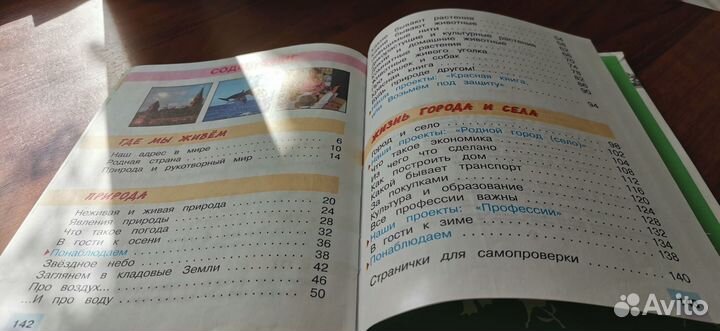 СОД
ГДЕ МЫ ЖИВЁМ
Наш адрес в мире 6
Родная страна 10
Природа и рукотворный мир 14
ПРИРОДА
Неживая и живая природа 20
Явления природы 24
Что такое погода 28
В гости к осени 32
Понаблюдаем 36
Звёздное небо 38
Заглянем в кладовые Земли 42
Про воздух... 46
...И про воду 50
142
бывают растения
бывают животные
нити
и культурные растения
и домашние животные
растения
живого уголка
кошек и собак
книга
природе другом!
проекты: «Красная книга,
или Возьмём под защиту» 94
ЖИЗНЬ ГОРОДА И СЕЛА
Город и село 98
Наши проекты: «Родной город (село)» 102
такое экономика 104
Из чего что сделано 108
Как построить дом 112
Какой бывает транспорт 116
Культура и образование 120
Все профессии важны 124
Наши проекты: «Профессии» 128
В гости к зиме 132
Понаблюдаем 134
138
Странички для самопроверки 140
Avito